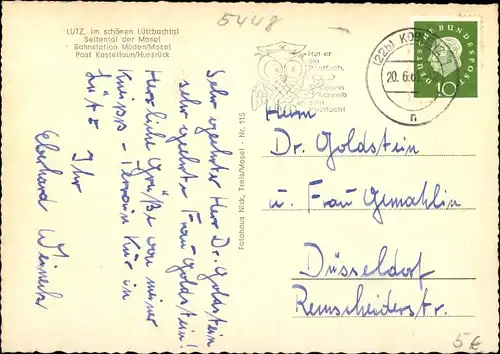 5448
LÜTZ, im schönen Lützbachtal
Seitental der Mosel
Bahnstation Müden/Mosel
Post Kastellaun/Hunsrück
Hat er
ein
Postfach,
dann
schreib
an sein
Postfach!
(22b) KOBLENZ
20. 6. 6
n
DEUTSCHE BUNDESPOST
10
Sehr geehrter Herr Dr. Goldstein
sehr geehrte Frau Goldstein!
Herrliche Grüße von meiner
Kneipp-Terrain Kur in
Lütz
Ihr
Eberhard Weinert
Fotohaus Nick, Treis/Mosel - Nr. 115
Herrn
Dr. Goldstein
u. Frau Gemahlin
Düsseldorf
Remscheiderstr.
5€